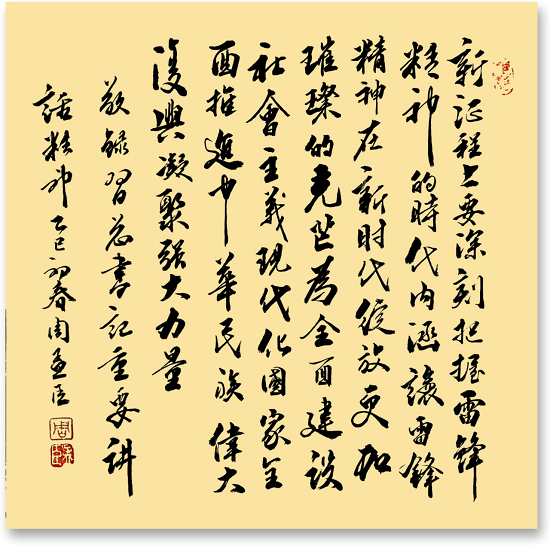 新征程上要深刻把握雷鋒
精神的時代内涵讓雷鋒
精神在新时代綻放更加
璀璨的光芒為全面建設
社會主義現代化國家全
面推進中華民族偉大
復興凝聚强大力量
敬錄習总書記重要讲
話精神乙巳初春周臣